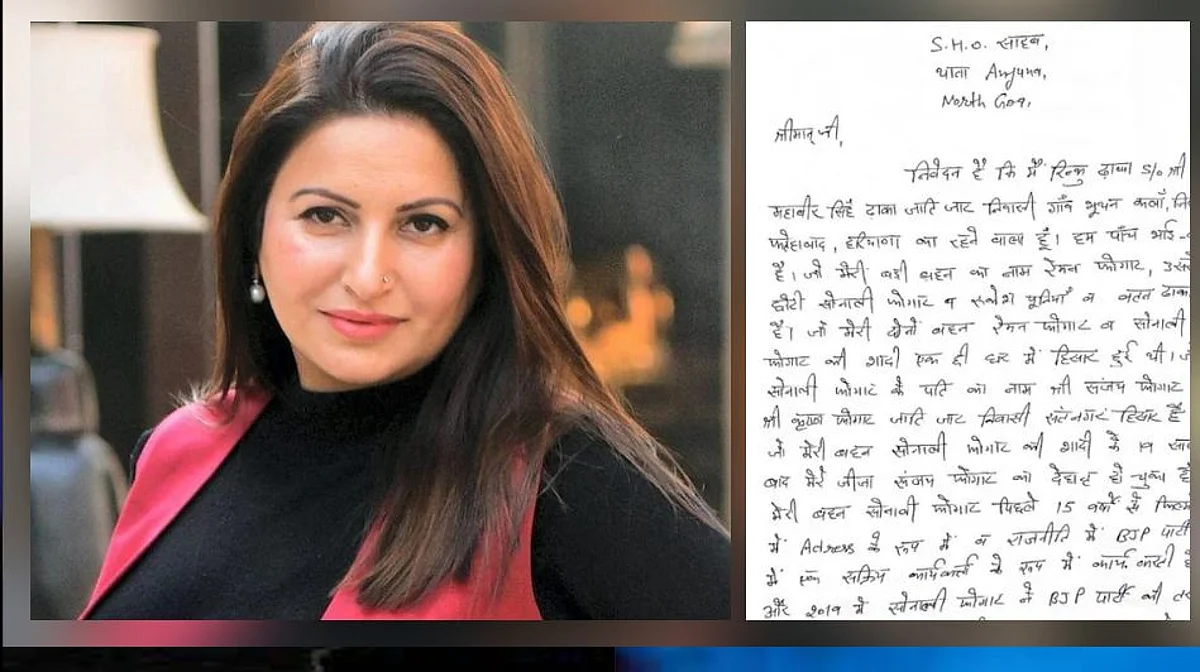 S.H.O. साहब,
थाना Anjuna,
North Goa,
श्रीमान् जी,
निवेदन है कि मैं रिन्कु ढ़ाका S/o श्री
महाबीर सिंह ढ़ाका जाति जाट निवासी गाँव भूथन कलाँ,
फतेहाबाद, हरियाणा का रहने वाला हूँ। हम पाँच भाई-
है। जो मेरी बड़ी बहन का नाम रेमन फोगाट, उससे
छोटी सोनाली फोगाट व रूकेश पूनियाँ व वतन ढाका
है। जो मेरी दोनों बहन रेमन फोगाट व सोनाली
फोगाट की शादी एक ही घर में हिसार हुई थी।
सोनाली फोगाट के पति का नाम श्री संजय फोगाट
श्री फोगाट जाति जाट निवासी संतनगर हिसार है
जो मेरी बहन सोनाली फोगाट की शादी के 19 साल
बाद मेरे जीजा संजय फोगाट का देहांत हो चुका है
मेरी बहन सोनाली फोगाट पिछले 15 वर्षों से फिल्म
में Actress के रूप में व राजनीति में BJP पार्टी
में एक सक्रिय कार्यकर्ता के रूप में कार्य करती
और 2019 में सोनाली फोगाट ने BJP पार्टी की